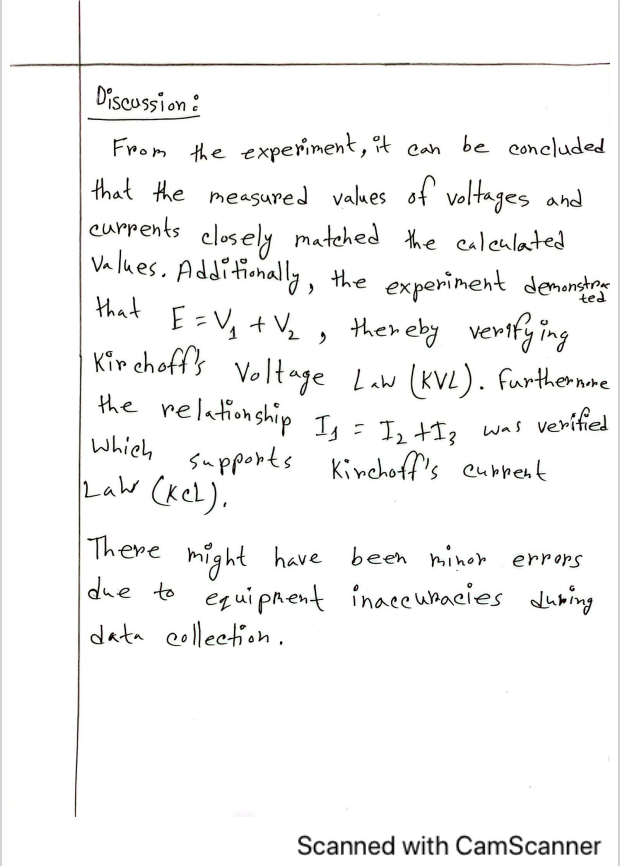 Discussion:
From the experiment, it can be concluded
that the measured values of voltages and
currents closely matched the calculated
Values. Additionally, the experiment demonstra
ted
that E = V₁ + V₂, thereby verifying
Kirchoff's Voltage Law (KVL). Furthermore
the relationship I₁ = I₂ + I₃ was verified
which supports Kirchoff's current
Law (KCL).
There might have been minor errors
due to equipment inaccuracies during
data collection.
Scanned with CamScanner